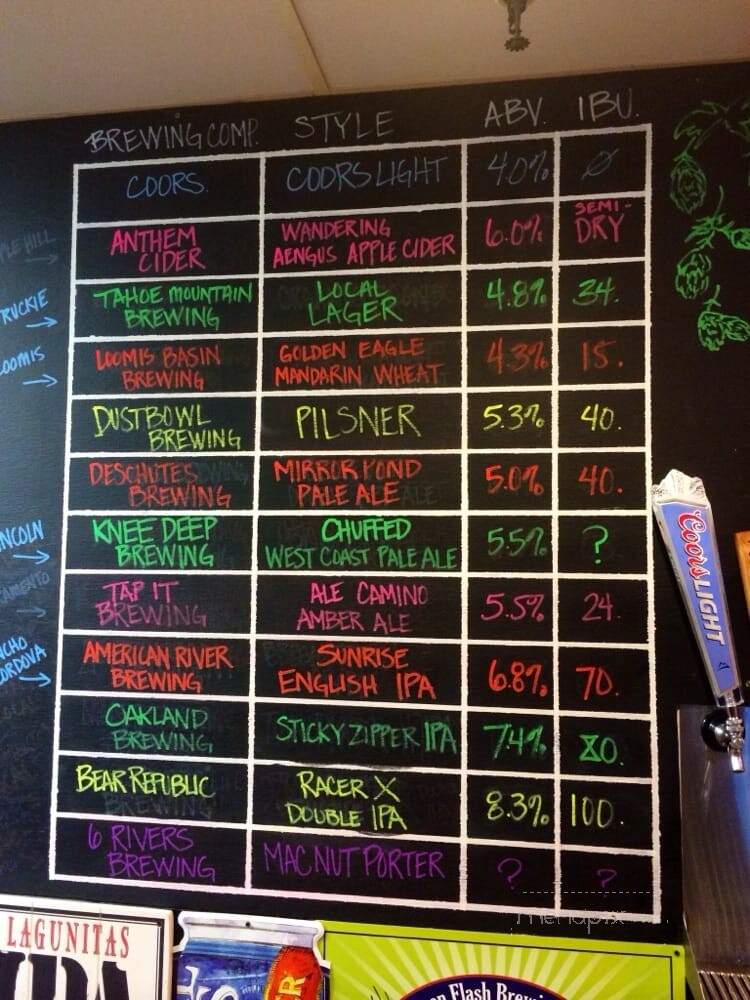 BREWING COMP. STYLE ABV. IBU.
COORS. COORS LIGHT 4.0% Ø
ANTHEM CIDER WANDERING AENGUS APPLE CIDER 6.0% SEMI-DRY
TAHOE MOUNTAIN BREWING LOCAL LAGER 4.8% 34.
LOOMIS BASIN BREWING GOLDEN EAGLE MANDARIN WHEAT 4.3% 15.
DUSTBOWL BREWING PILSNER 5.3% 40.
DESCHUTES BREWING MIRROR POND PALE ALE 5.0% 40.
KNEE DEEP BREWING CHUFFED WEST COAST PALE ALE 5.5% ?
TAP IT BREWING ALE CAMINO AMBER ALE 5.5% 24.
AMERICAN RIVER BREWING SUNRISE ENGLISH IPA 6.8% 70.
OAKLAND BREWING STICKY ZIPPER IPA 7.4% 80.
BEAR REPUBLIC BREWING RACER X DOUBLE IPA 8.3% 100.
6 RIVERS BREWING MAC NUT PORTER ? ?
PLE HILL
RUCKIE
OOMIS
NCOLN
AMENTO
NCHO
CORDOVA
Coors LIGHT
LAGUNITAS
IPA
Flash Brew
menupix